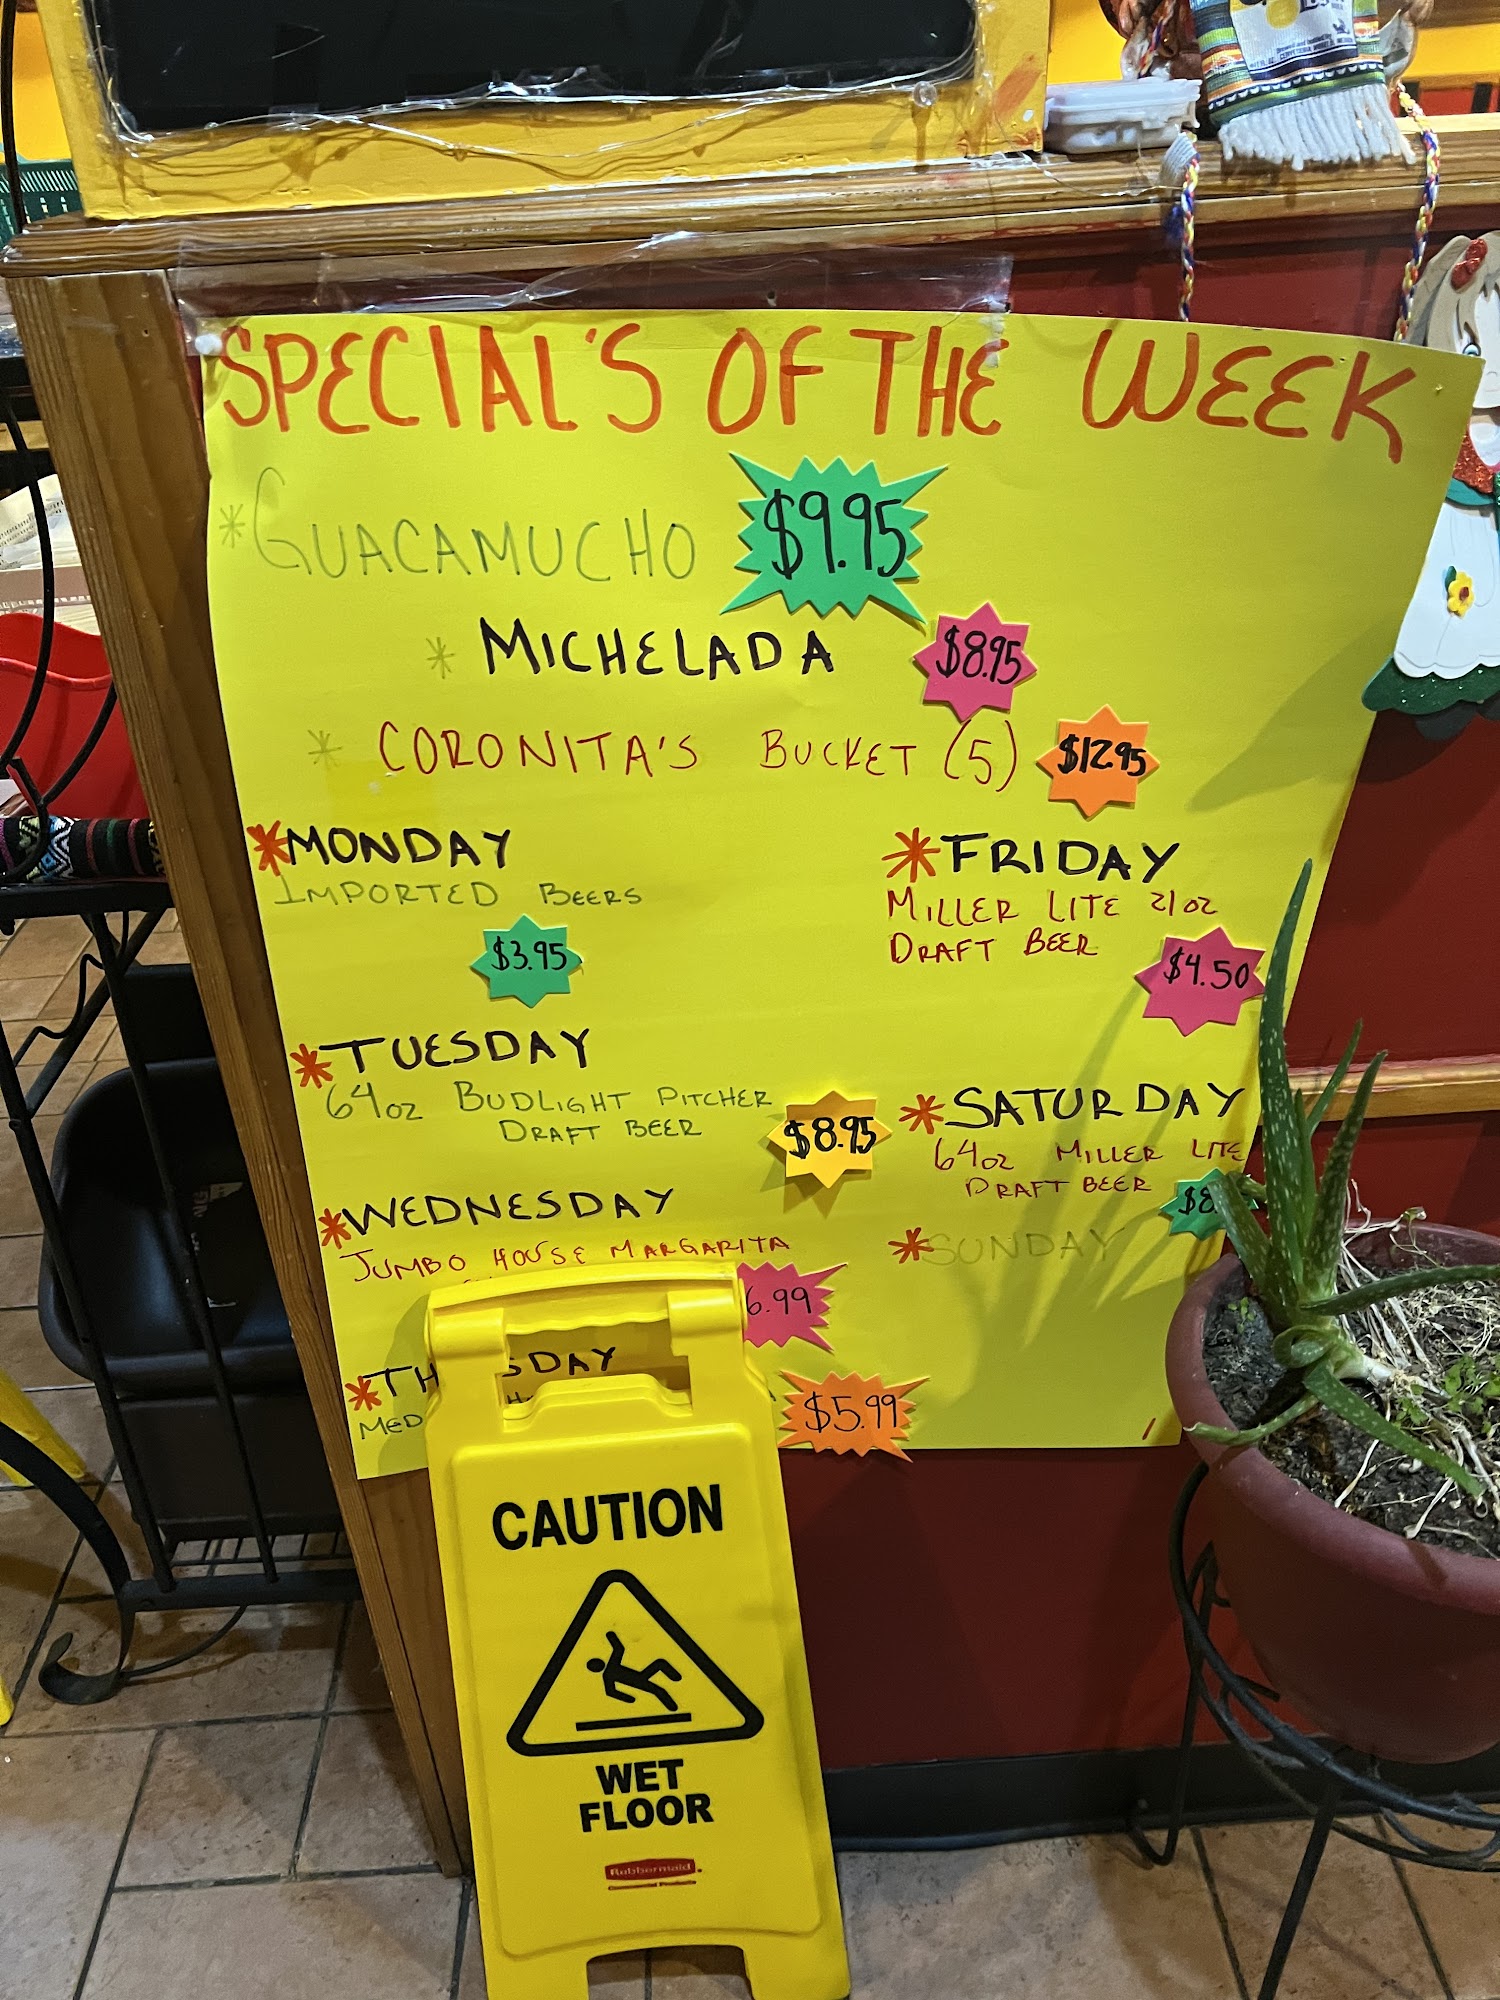 SPECIAL'S OF THE WEEK
*GUACAMUCHO $9.95
* MICHELADA $8.95
* CORONITA'S BUCKET (5) $12.95
*MONDAY
IMPORTED BEERS
$3.95
*TUESDAY
64oz BUDLIGHT PITCHER
DRAFT BEER
$8.95
*WEDNESDAY
JUMBO HOUSE MARGARITA
6.99
*TH SDAY
MED
$5.99
*FRIDAY
MILLER LITE 21oz
DRAFT BEER
$4.50
*SATURDAY
64oz MILLER LITE
DRAFT BEER
$8.
*SUNDAY
CAUTION
WET
FLOOR
Rubbermaid
Commercial Products